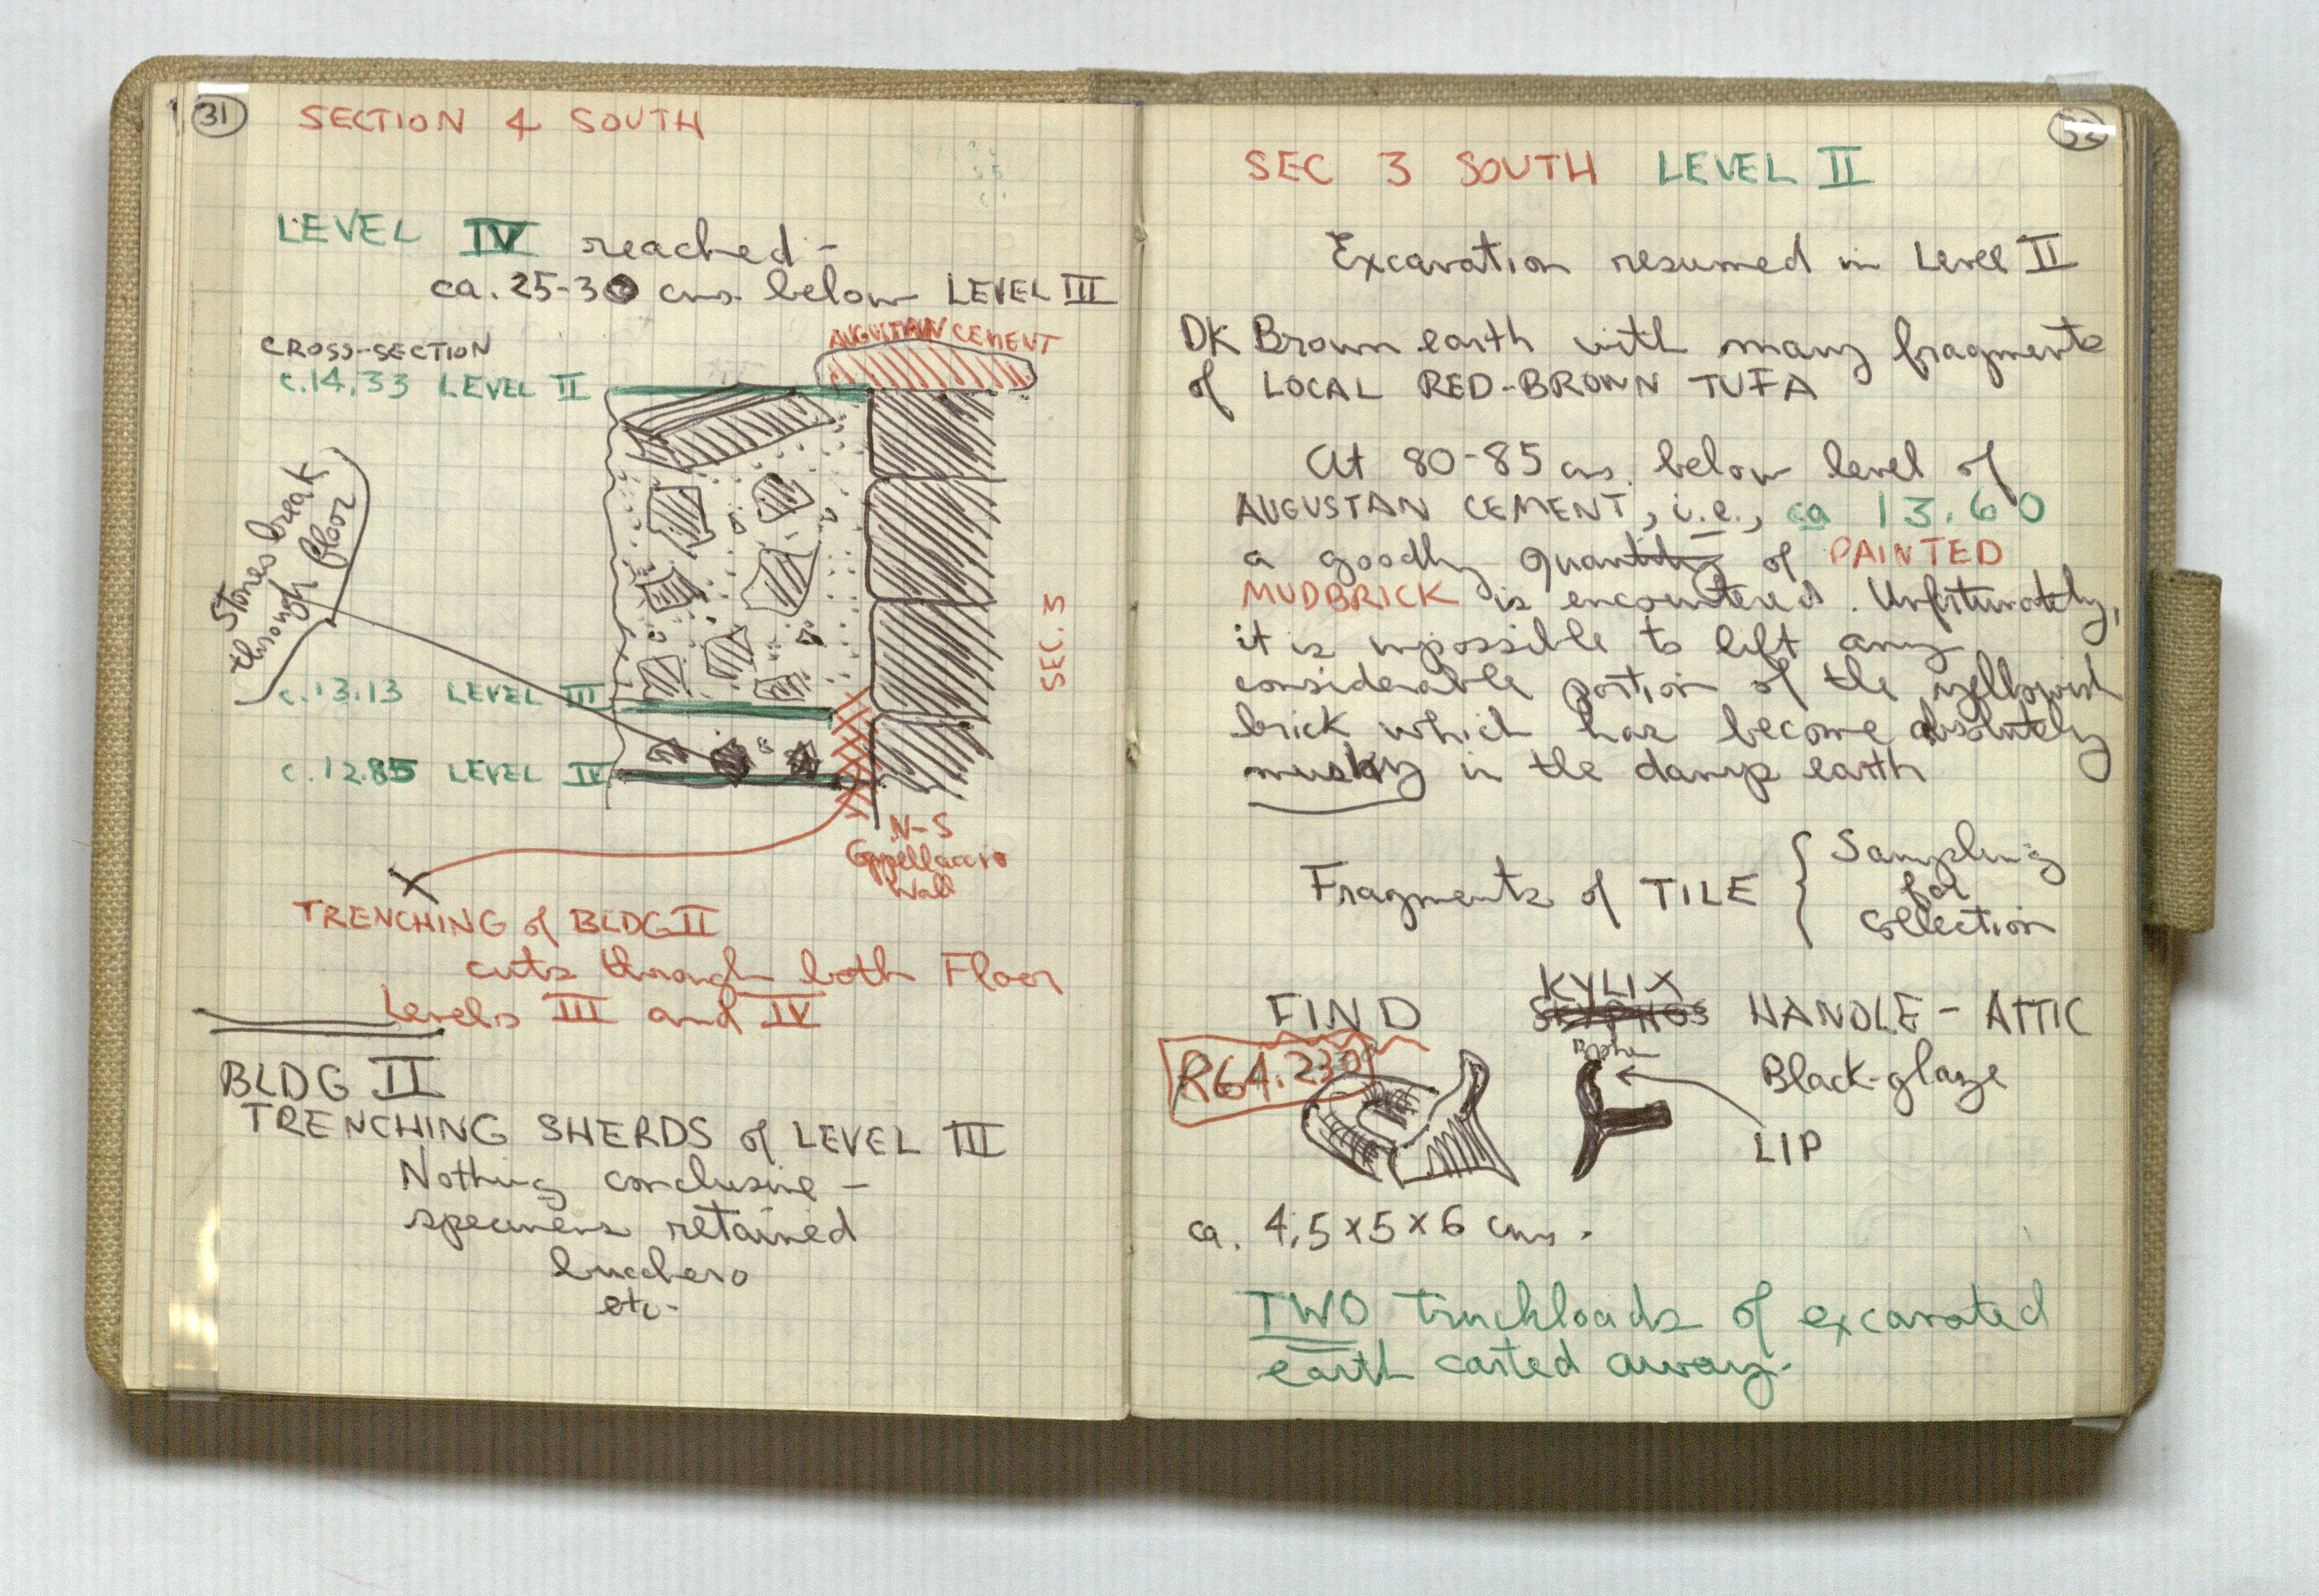 31
SECTION 4 SOUTH
LEVEL IV reached -
ca. 25-30 cms. below LEVEL III
CROSS-SECTION
AUGUSTAN CEMENT
c.14.33 LEVEL II
Stones break
through floor
SEC. 3
c.13.13 LEVEL III
c.12.85 LEVEL IV
N-S
Cappellaccio
Wall
TRENCHING of BLDG II
cuts through both Floor
Levels III and IV
BLDG II
TRENCHING SHERDS of LEVEL III
Nothing conclusive -
specimens retained
bucchero
etc-
32
SEC 3 SOUTH LEVEL II
Excavation resumed in Level II
DK Brown earth with many fragments
of LOCAL RED-BROWN TUFA
At 80-85 cms. below level of
AUGUSTAN CEMENT, i.e., ca 13.60
a goodly quantity of PAINTED
MUDBRICK is encountered. Unfortunately,
it is impossible to lift any
considerable portion of the yellowish
brick which has become absolutely
mushy in the damp earth
Fragments of TILE { Sampling
for
collection
KYLIX
FIND SKYPHOS HANDLE - ATTIC
R64.230
Black-glaze
LIP
ca. 4,5 x 5 x 6 cms.
TWO truckloads of excavated
earth carted away.